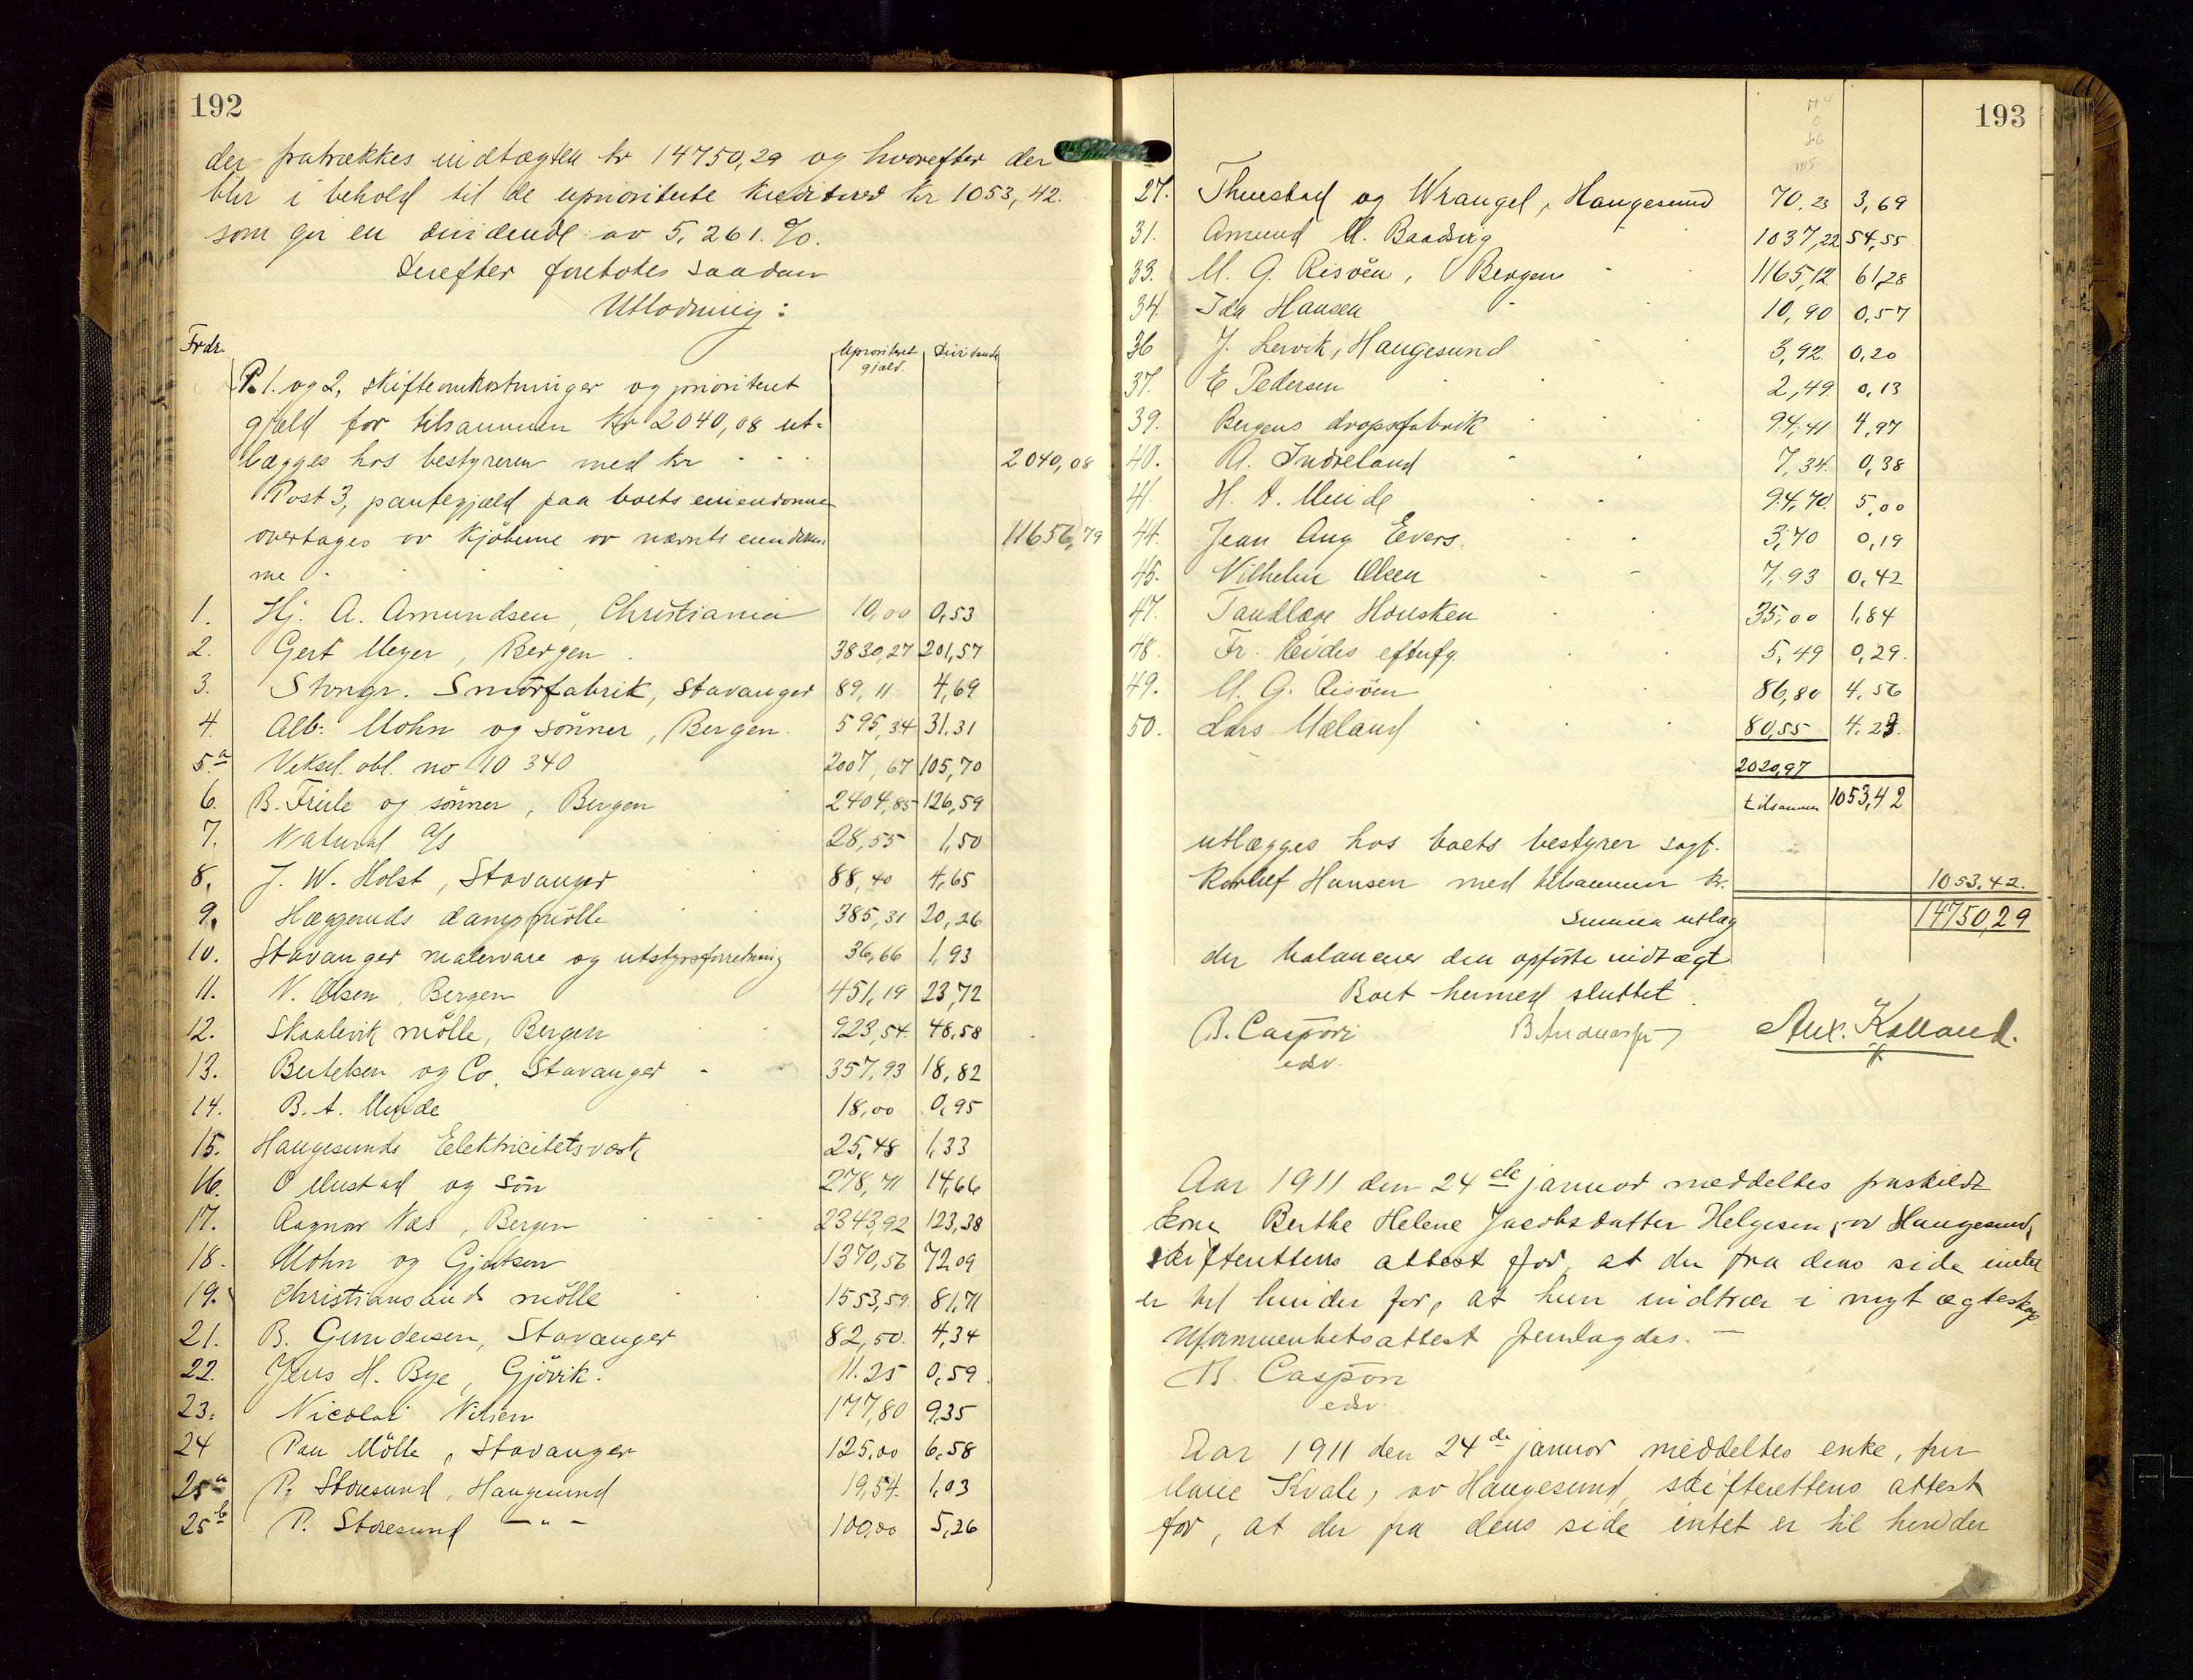 192
der fratrækkes indtægten kr 14750,29 og hvorefter der
blir i behold til de uprioriterte kreditorer kr 1053,42.
som gir en dividende av 5,261 %.
Derefter foretokes saadan
Utlodning:
Frdr. Uprioritert gjæld. Dividende
P. 1. og 2, skifteomkostninger og prioritert
gjæld for tilsammen kr 2040,08 ut-
lægges hos bestyreren med kr 2040,08
Post 3, pantegjæld paa boets eiendomme
overtages av kjøberne av nævnte eiendom- 11656,79
me
1. Hj. A. Amundsen, Christiania 10,00 0,53
2. Gert Meyer, Bergen 3830,27 201,57
3. Stvngr. Smørfabrik, Stavanger 89,11 4,69
4. Alb. Mohn og sønner, Bergen 595,34 31,31
5.a Veksel. obl. no 10 340 2007,67 105,70
6. B. Friele og sønner, Bergen 2404,85 126,59
7. Natural A/S 28,55 1,50
8. J. W. Holst, Stavanger 88,40 4,65
9. Hæggernds dampmølle 385,31 20,26
10. Stavanger malervare og utstyrsforretning 36,66 1,93
11. N. Olsen, Bergen 451,19 23,72
12. Skaalevik mølle, Bergen 923,54 48,58
13. Bertelsen og Co, Stavanger 357,93 18,82
14. B. A. Meide 18,00 0,95
15. Haugesunds Eelektricitetsverk 25,48 1,33
16. O Mustad og søn 278,71 14,66
17. Ragnar Næs, Bergen 2343,92 123,38
18. Mohn og Gjertsen 1370,56 72,09
19. Christiansands mølle 1553,59 81,71
21. B. Gundersen, Stavanger 82,50 4,34
22. Jens H. Bye, Gjøvik. 11.25 0,59
23. Nicolai Nilsen 177,80 9,35
24 Pau Mølle, Stavanger 125,00 6,58
25a P. Storesund, Haugesund 19,54 1,03
25b P. Storesund -"- 100,00 5,26
193
27. Thuestad og Wrangel, Haugesund 70,23 3,69
31. Amund M. Baadsvig 1037,22 54,55
33. M. G. Risøen, Bergen 1165,12 61,28
34. Ida Hansen 10,90 0,57
36 J. Lervik, Haugesund 3,92 0,20
37. E Pedersen 2,49 0,13
39. Bergens dropsfabrik 94,41 4,97
40. A. Indreland 7,34 0,38
41. H. A. Meide 94,70 5,00
44. Jean Aug Evers. 3,70 0,19
45. Vilhelm Olsen 7,93 0,42
47. Tandlæge Housken 35,00 1,84
48. Fr. eftufg. 5,49 0,29
49. M. G. Risøen 86,80 4,56
50. Lars Mæland 80,55 4,23
2020,97
tilsammen 1053,42
utlægges hos boets bestyrer sagf.
Hansen med tilsammen kr. 1053,42.
Summa utlæg 14750,29
der balancerer den opførte indtægt
Boet hermed sluttet.
B. Caspari Alex. Kielland.
edsv.
Aar 1911 den 24de januar meddeltes fraskildt
kone Berthe Helene Jacobsdatter Helgesen, av Haugesund,
skifterettens attest for, at der fra dens side intet
er til hinder for, at hun indtrær i nyt ægteskap
Uformuenhetsattest fremlagdes. —
B. Caspari
edsv.
Aar 1911 den 24de januar meddeltes enke, fru
Marie Kvale, av Haugesund, skifterettens attest
for, at der fra dens side intet er til hinder